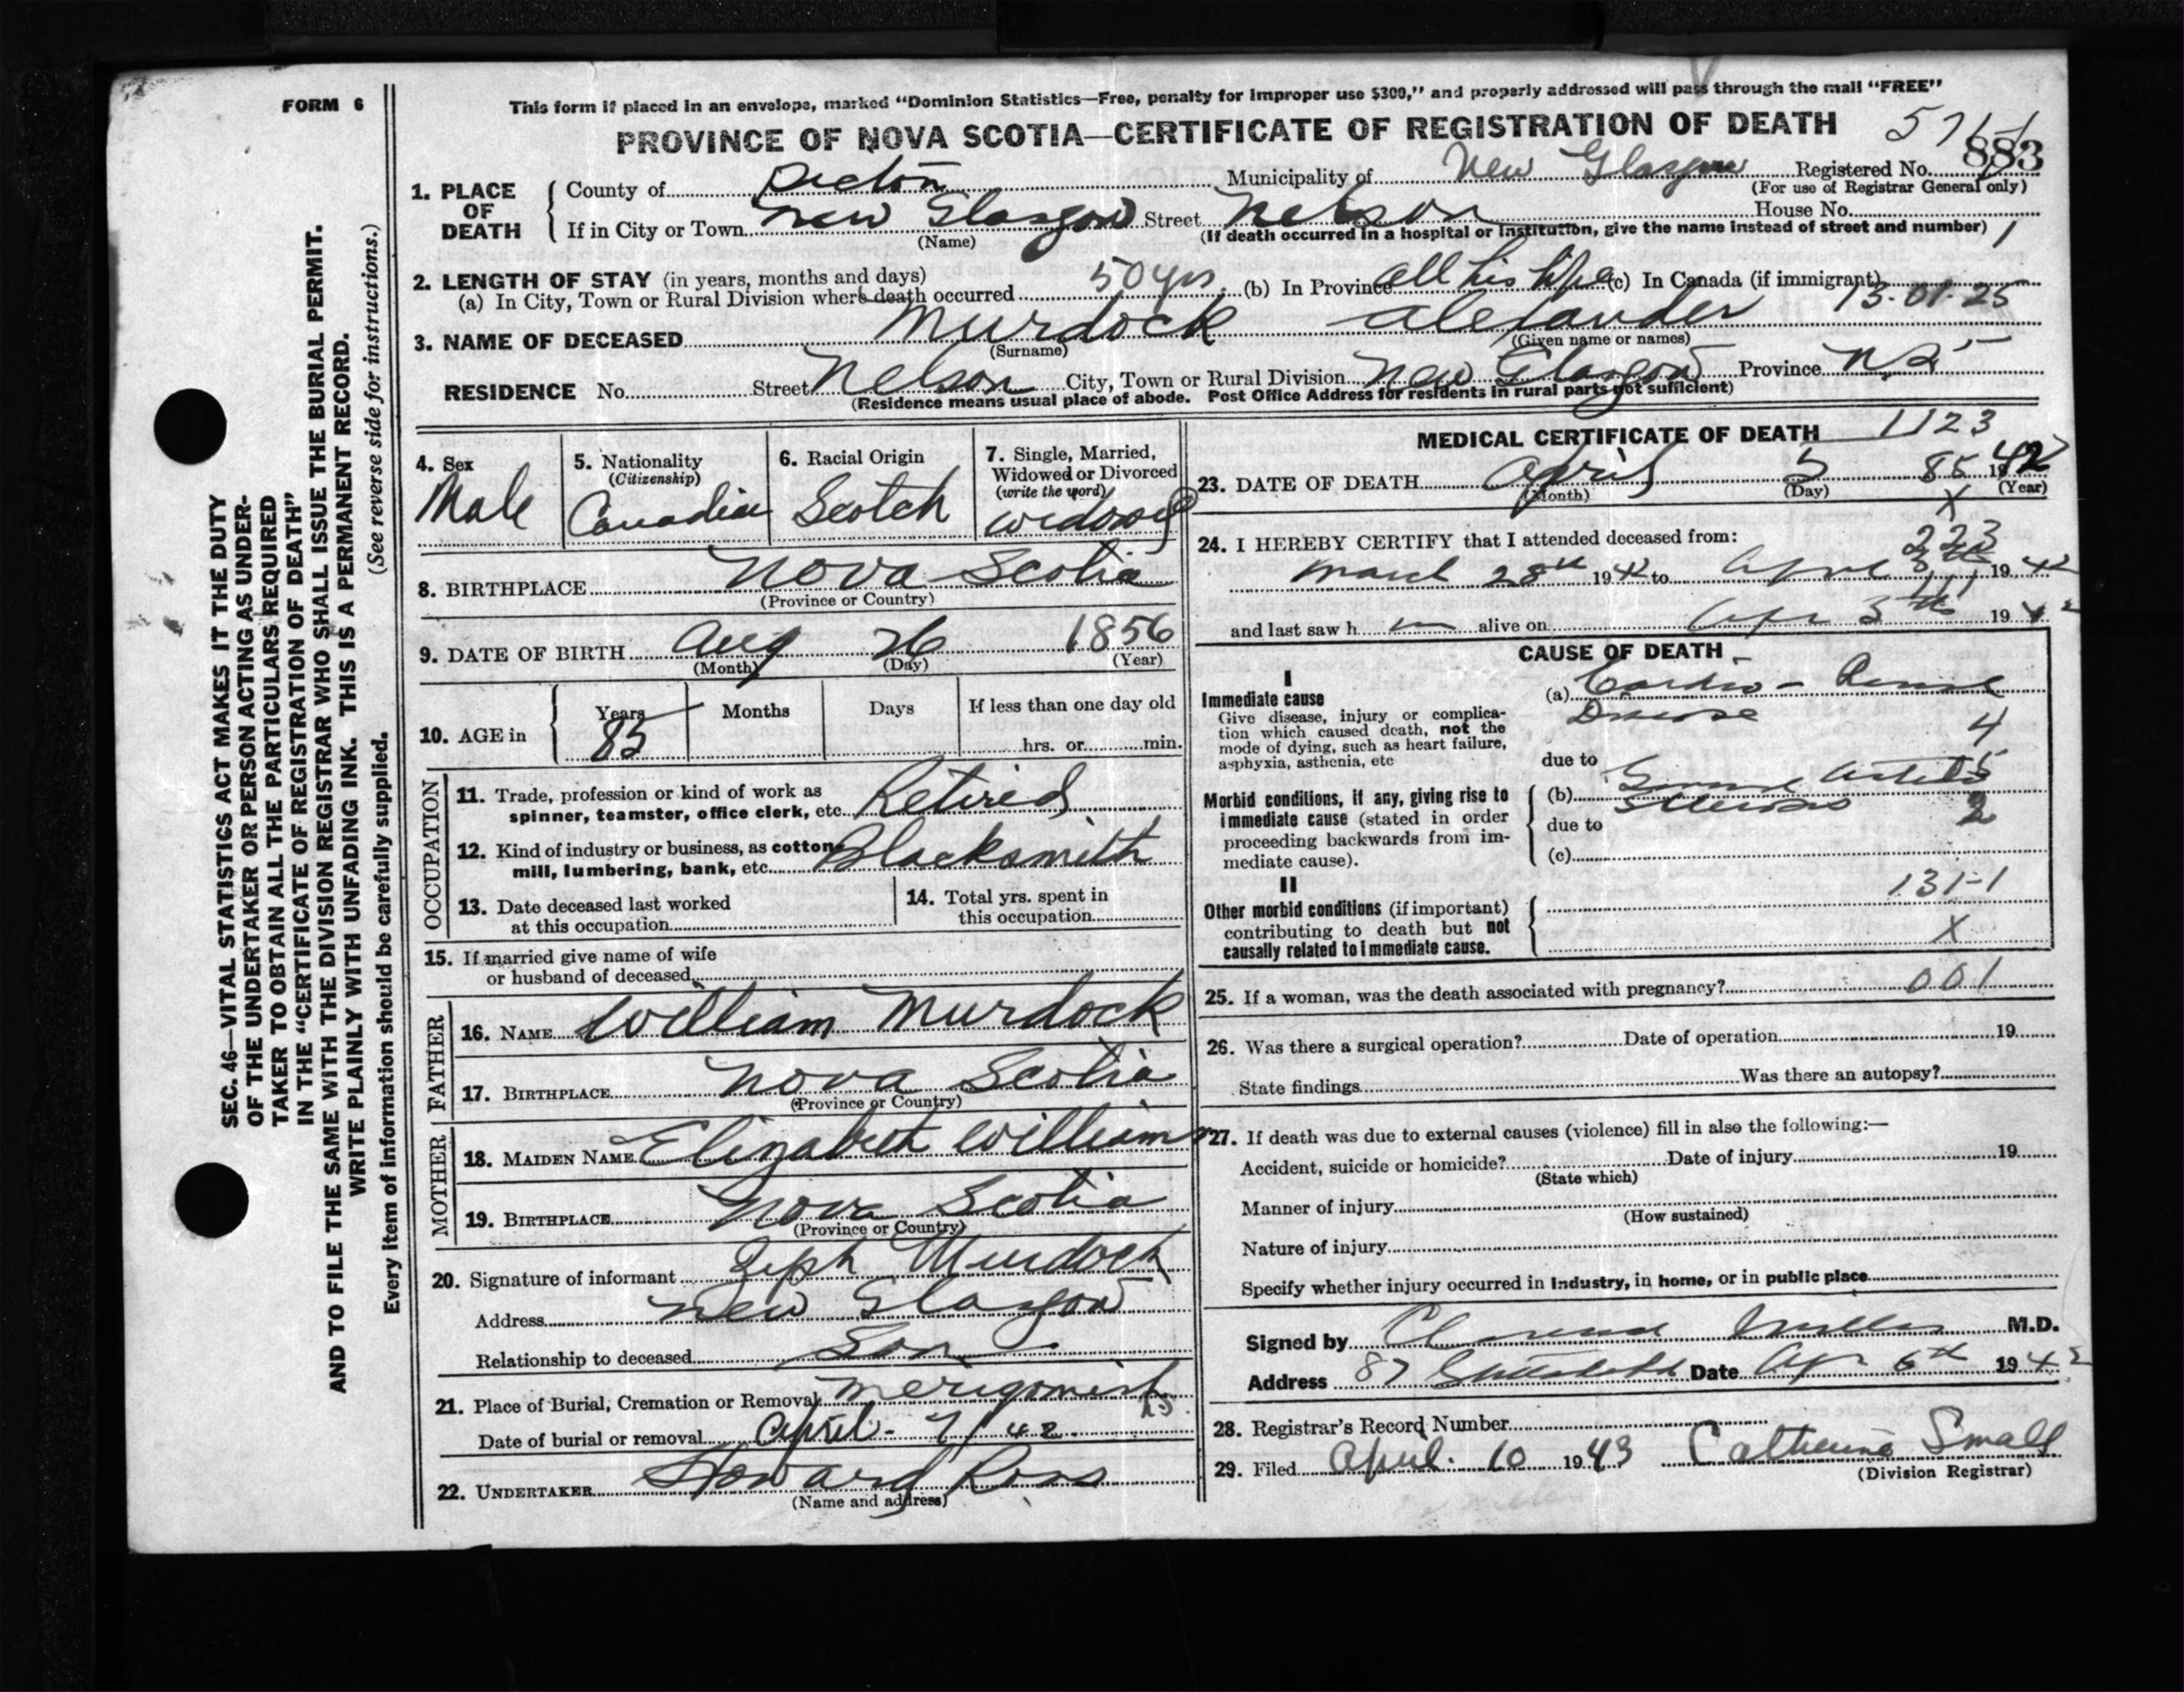 FORM 6
This form if placed in an envelope, marked "Dominion Statistics—Free, penalty for improper use $300," and properly addressed will pass through the mail "FREE"
PROVINCE OF NOVA SCOTIA—CERTIFICATE OF REGISTRATION OF DEATH
SEC. 46—VITAL STATISTICS ACT MAKES IT THE DUTY
OF THE UNDERTAKER OR PERSON ACTING AS UNDER-
TAKER TO OBTAIN ALL THE PARTICULARS REQUIRED
IN THE "CERTIFICATE OF REGISTRATION OF DEATH"
AND TO FILE THE SAME WITH THE DIVISION REGISTRAR WHO SHALL ISSUE THE BURIAL PERMIT.
WRITE PLAINLY WITH UNFADING INK. THIS IS A PERMANENT RECORD.
(See reverse side for instructions.)
Every item of information should be carefully supplied.
1. PLACE OF DEATH
County of Pictou Municipality of New Glasgow Registered No. 883
(For use of Registrar General only)
If in City or Town New Glasgow Street Nelson House No.
(Name) (If death occurred in a hospital or institution, give the name instead of street and number) 1
2. LENGTH OF STAY (in years, months and days)
(a) In City, Town or Rural Division where death occurred 50 yrs. (b) In Province all his life (c) In Canada (if immigrant)
13-01-25
3. NAME OF DECEASED Murdock Alexander
(Surname) (Given name or names)
RESIDENCE No. Street Nelson City, Town or Rural Division New Glasgow Province N.S
(Residence means usual place of abode. Post Office Address for residents in rural parts not sufficient)
4. Sex
Male
5. Nationality
(Citizenship)
Canadian
6. Racial Origin
Scotch
7. Single, Married,
Widowed or Divorced
(write the word)
widowed
8. BIRTHPLACE Nova Scotia
(Province or Country)
9. DATE OF BIRTH Aug 26 1856
(Month) (Day) (Year)
10. AGE in Years Months Days If less than one day old
85 hrs. or min.
OCCUPATION
11. Trade, profession or kind of work as
spinner, teamster, office clerk, etc. Retired
12. Kind of industry or business, as cotton
mill, lumbering, bank, etc. Blacksmith
13. Date deceased last worked
at this occupation
14. Total yrs. spent in
this occupation
15. If married give name of wife
or husband of deceased
FATHER
16. NAME William Murdock
17. BIRTHPLACE Nova Scotia
(Province or Country)
MOTHER
18. MAIDEN NAME Elizabeth Williams
19. BIRTHPLACE Nova Scotia
(Province or Country)
20. Signature of informant Zeph Murdock
Address New Glasgow
Relationship to deceased Son
21. Place of Burial, Cremation or Removal Merigomish
Date of burial or removal April - 7/42.
22. UNDERTAKER Howard Ross
(Name and address)
MEDICAL CERTIFICATE OF DEATH 1123
23. DATE OF DEATH April 5 85 1942
(Month) (Day) (Year)
X
24. I HEREBY CERTIFY that I attended deceased from:
223
March 28th 1942 to April 3th 1942
111
and last saw h im alive on Apr 3th 1942
CAUSE OF DEATH
I
Immediate cause
Give disease, injury or complica-
tion which caused death, not the
mode of dying, such as heart failure,
asphyxia, asthenia, etc
(a) Cardio-Renal
Disease 4
due to
Morbid conditions, if any, giving rise to
immediate cause (stated in order
proceeding backwards from im-
mediate cause).
(b) General Arterio 5
Sclerosis 2
due to
(c)
II
Other morbid conditions (if important)
contributing to death but not
causally related to immediate cause.
131-1
X
25. If a woman, was the death associated with pregnancy? 001
26. Was there a surgical operation? Date of operation 19
State findings Was there an autopsy?
27. If death was due to external causes (violence) fill in also the following:—
Accident, suicide or homicide? Date of injury 19
(State which)
Manner of injury
(How sustained)
Nature of injury
Specify whether injury occurred in industry, in home, or in public place
Signed by Clarence Miller M.D.
Address 87 Date Apr 6th 1942
28. Registrar's Record Number
29. Filed April. 10 1943 Catherine Small
(Division Registrar)